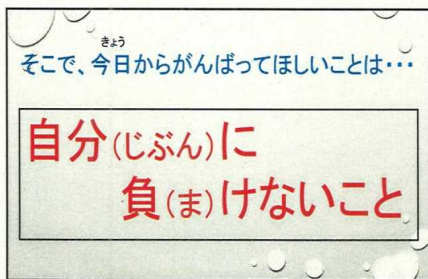 きょう
そこで、今日からがんばってほしいことは・・・
自分(じぶん)に
負(ま)けないこと